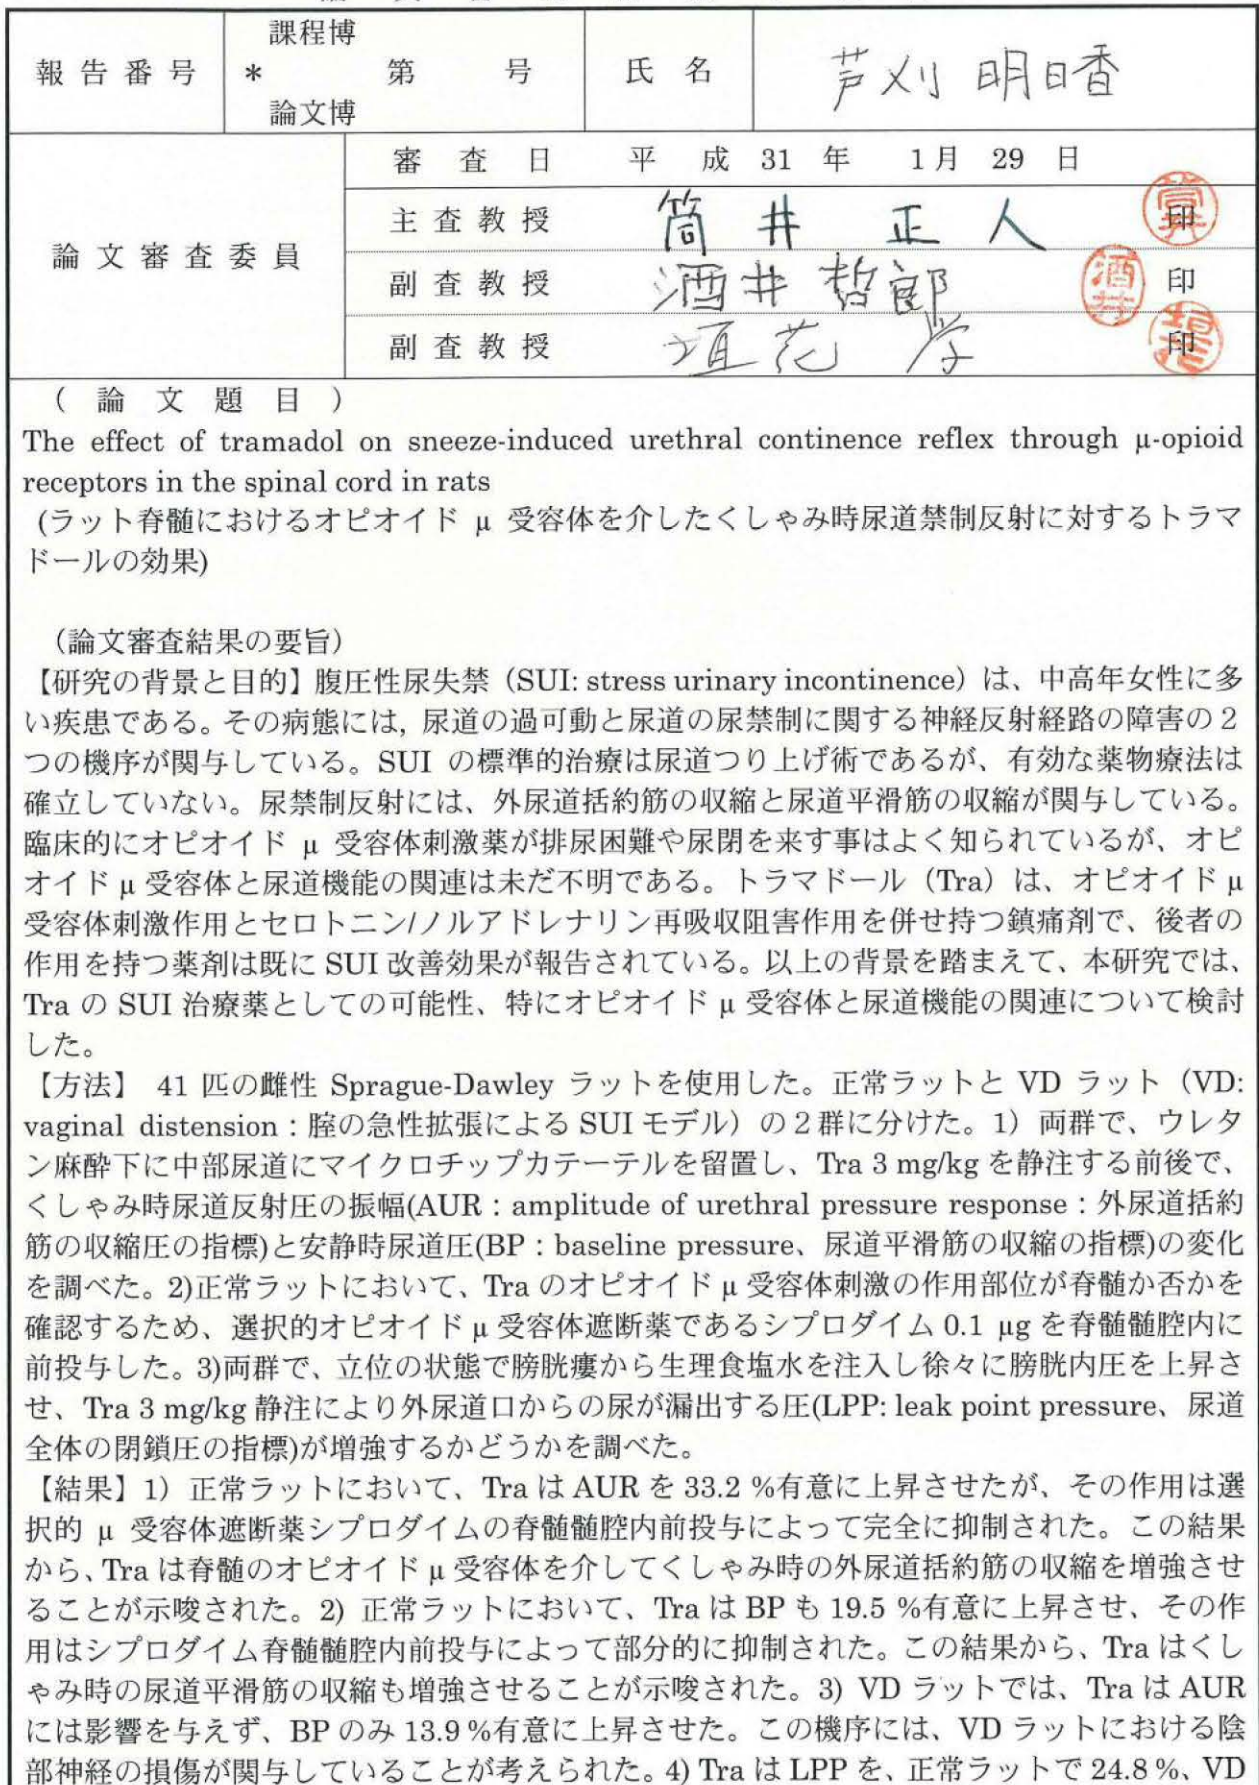 課程博
報告番号 * 第 号 氏名 芦刈 明日香
論文博
審査日 平成 31 年 1月 29 日
論文審査委員
主査教授 筒井 正人 印
副査教授 酒井 哲郎 印
副査教授 垣花 学 印
(論文題目)
The effect of tramadol on sneeze-induced urethral continence reflex through μ-opioid
receptors in the spinal cord in rats
(ラット脊髄におけるオピオイド μ 受容体を介したくしゃみ時尿道禁制反射に対するトラマ
ドールの効果)
（論文審査結果の要旨）
【研究の背景と目的】腹圧性尿失禁（SUI: stress urinary incontinence）は、中高年女性に多
い疾患である。その病態には, 尿道の過可動と尿道の尿禁制に関する神経反射経路の障害の２
つの機序が関与している。SUI の標準的治療は尿道つり上げ術であるが、有効な薬物療法は
確立していない。尿禁制反射には、外尿道括約筋の収縮と尿道平滑筋の収縮が関与している。
臨床的にオピオイド μ 受容体刺激薬が排尿困難や尿閉を来す事はよく知られているが、オピ
オイド μ 受容体と尿道機能の関連は未だ不明である。トラマドール（Tra）は、オピオイド μ
受容体刺激作用とセロトニン/ノルアドレナリン再吸収阻害作用を併せ持つ鎮痛剤で、後者の
作用を持つ薬剤は既に SUI 改善効果が報告されている。以上の背景を踏まえて、本研究では、
Tra の SUI 治療薬としての可能性、特にオピオイド μ 受容体と尿道機能の関連について検討
した。
【方法】 41 匹の雌性 Sprague-Dawley ラットを使用した。正常ラットと VD ラット（VD:
vaginal distension：腟の急性拡張による SUI モデル）の２群に分けた。1）両群で、ウレタ
ン麻酔下に中部尿道にマイクロチップカテーテルを留置し、Tra 3 mg/kg を静注する前後で、
くしゃみ時尿道反射圧の振幅(AUR：amplitude of urethral pressure response：外尿道括約
筋の収縮圧の指標)と安静時尿道圧(BP：baseline pressure、尿道平滑筋の収縮の指標)の変化
を調べた。2)正常ラットにおいて、Tra のオピオイド μ 受容体刺激の作用部位が脊髄か否かを
確認するため、選択的オピオイド μ 受容体遮断薬であるシプロダイム 0.1 μg を脊髄髄腔内に
前投与した。3)両群で、立位の状態で膀胱瘻から生理食塩水を注入し徐々に膀胱内圧を上昇さ
せ、Tra 3 mg/kg 静注により外尿道口からの尿が漏出する圧(LPP: leak point pressure、尿道
全体の閉鎖圧の指標)が増強するかどうかを調べた。
【結果】1）正常ラットにおいて、Tra は AUR を 33.2 %有意に上昇させたが、その作用は選
択的 μ 受容体遮断薬シプロダイムの脊髄髄腔内前投与によって完全に抑制された。この結果
から、Tra は脊髄のオピオイド μ 受容体を介してくしゃみ時の外尿道括約筋の収縮を増強させ
ることが示唆された。2) 正常ラットにおいて、Tra は BP も 19.5 %有意に上昇させ、その作
用はシプロダイム脊髄髄腔内前投与によって部分的に抑制された。この結果から、Tra はくし
ゃみ時の尿道平滑筋の収縮も増強させることが示唆された。3) VD ラットでは、Tra は AUR
には影響を与えず、BP のみ 13.9 %有意に上昇させた。この機序には、VD ラットにおける陰
部神経の損傷が関与していることが考えられた。4) Tra は LPP を、正常ラットで 24.8 %、VD